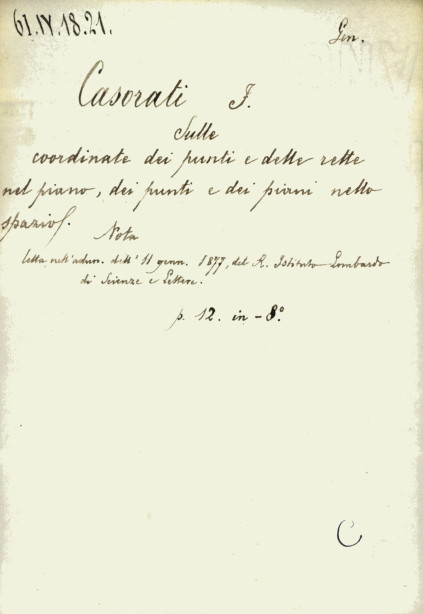 61.IV.18.21.
Gen.
Casorati F.
Sulle
coordinate dei punti e delle rette
nel piano, dei punti e dei piani nello
spazio.
Nota
letta nell'adun. dell' 11 genn. 1877, del R. Istituto Lombardo
di Scienze e Lettere.
p. 12. in - 8°
C